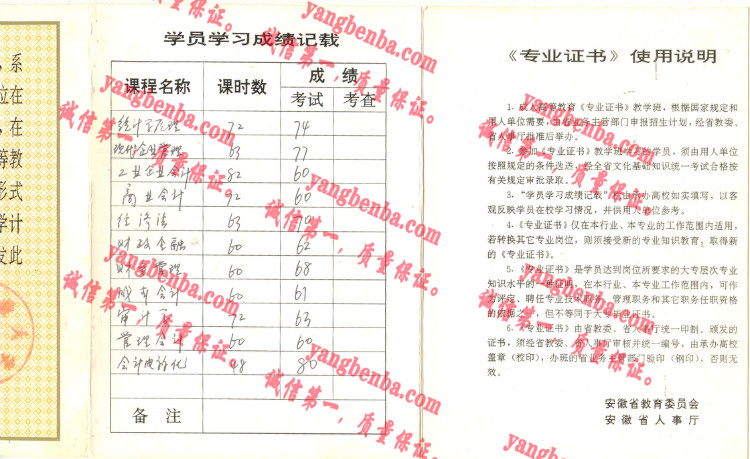 系
位在
，在
等教
形式
学计
发此
学员学习成绩记载
课程名称 课时数 成绩
考试 考查
统计学原理 72 74
现代企业管理 63 77
工业企业会计 82 60
商业会计 92 60
经济法 63 70
财政金融 60 62
财务管理 60 68
成本会计 60 61
审计 72 63
管理会计 60 60
会计电算化 48 80
备注
《专业证书》使用说明
1. 成人高等教育《专业证书》教学班，根据国家规定和
用人单位需要，由省业务主管部门申报招生计划，经省教委、
省人事厅批准后举办。
2. 参加《专业证书》教学班学习的学员，须由用人单位
按照规定的条件选送，经全省文化基础知识统一考试合格按
有关规定审批录取。
3. “学员学习成绩记载”应由承办高校如实填写，以客
观反映学员在校学习情况，并供用人单位参考。
4. 《专业证书》仅在本行业、本专业的工作范围内适用，
若转换其它专业岗位，则须接受新的专业知识教育，取得新
的《专业证书》。
5. 《专业证书》是学员达到岗位所要求的大专层次专业
知识水平的一种证明，在本行业、本专业工作范围内，可作
为评定、聘任专业技术职务、管理职务和其它职务任职资格
的依据之一，但不等同于大专毕业证书。
6. 《专业证书》由省教委、省人事厅统一印制，颁发的
证书，须经省教委、省人事厅审核并统一编号，由承办高校
盖章（校印），办班的省业务主管部门验印（钢印），否则无
效。
安徽省教育委员会
安徽省人事厅
yangbenba.com
诚信第一，质量保证。